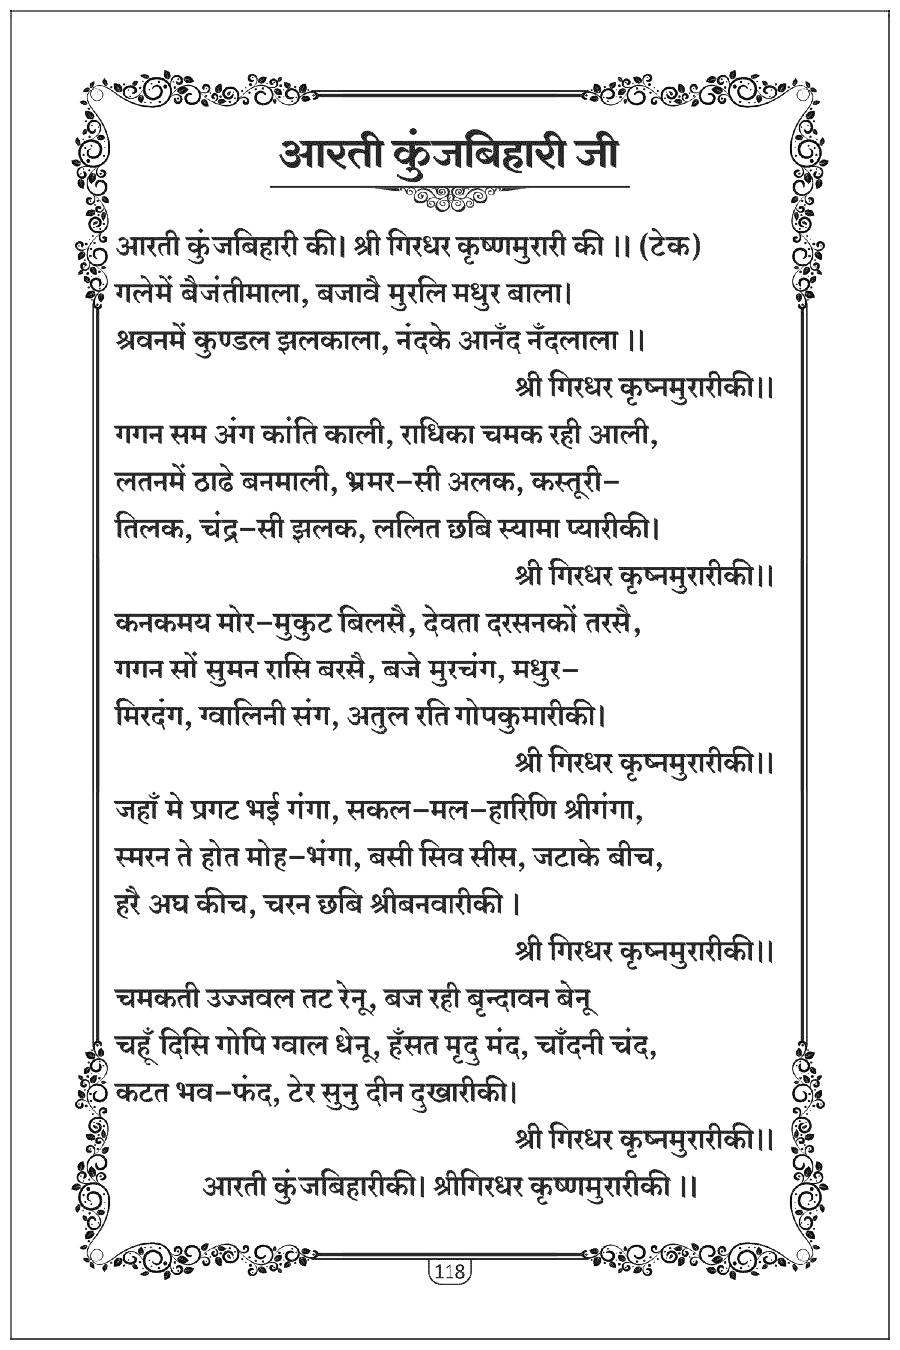 आरती कुंजबिहारी जी
आरती कुंजबिहारी की। श्री गिरधर कृष्णमुरारी की ।। (टेक)
गलेमें बैजंतीमाला, बजावै मुरलि मधुर बाला।
श्रवनमें कुण्डल झलकाला, नंदके आनँद नँदलाला ।।
श्री गिरधर कृष्नमुरारीकी।।
गगन सम अंग कांति काली, राधिका चमक रही आली,
लतनमें ठाढे बनमाली, भ्रमर–सी अलक, कस्तूरी–
तिलक, चंद्र–सी झलक, ललित छबि स्यामा प्यारीकी।
श्री गिरधर कृष्नमुरारीकी।।
कनकमय मोर–मुकुट बिलसै, देवता दरसनकों तरसै,
गगन सों सुमन रासि बरसै, बजे मुरचंग, मधुर–
मिरदंग, ग्वालिनी संग, अतुल रति गोपकुमारीकी।
श्री गिरधर कृष्नमुरारीकी।।
जहाँ मे प्रगट भई गंगा, सकल–मल–हारिणि श्रीगंगा,
स्मरन ते होत मोह–भंगा, बसी सिव सीस, जटाके बीच,
हरै अघ कीच, चरन छबि श्रीबनवारीकी ।
श्री गिरधर कृष्नमुरारीकी।।
चमकती उज्जवल तट रेनू, बज रही बृन्दावन बेनू
चहूँ दिसि गोपि ग्वाल धेनू, हँसत मृदु मंद, चाँदनी चंद,
कटत भव–फंद, टेर सुनु दीन दुखारीकी।
श्री गिरधर कृष्नमुरारीकी।।
आरती कुंजबिहारीकी। श्रीगिरधर कृष्णमुरारीकी ।।
118